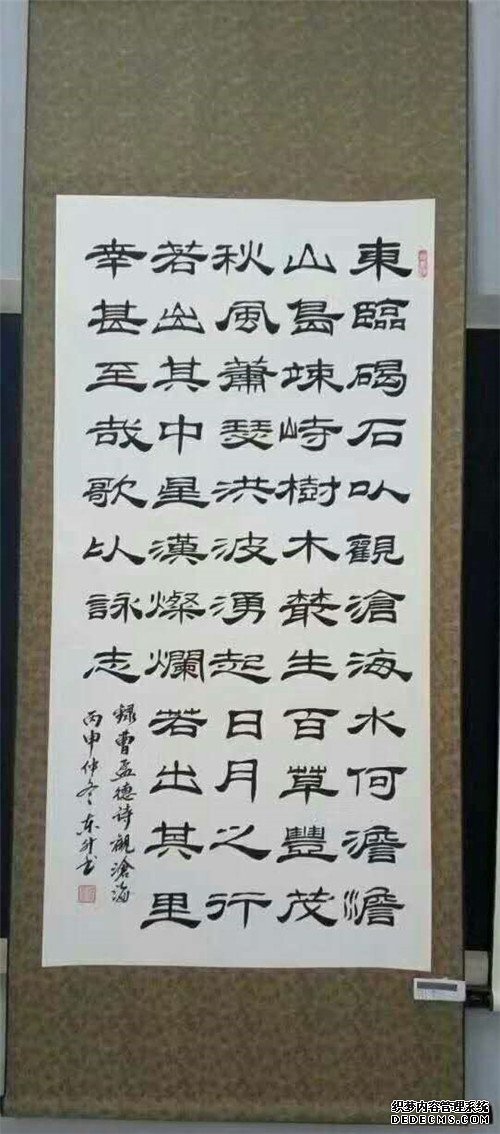 東臨碣石以觀滄海水何澹澹
山島竦峙樹木叢生百草豐茂
秋風蕭瑟洪波湧起日月之行
若出其中星漢燦爛若出其里
幸甚至哉歌以詠志
録曹孟德诗觀滄海
丙申仲冬东升书
织梦内容管理系统
DEDECMS.COM